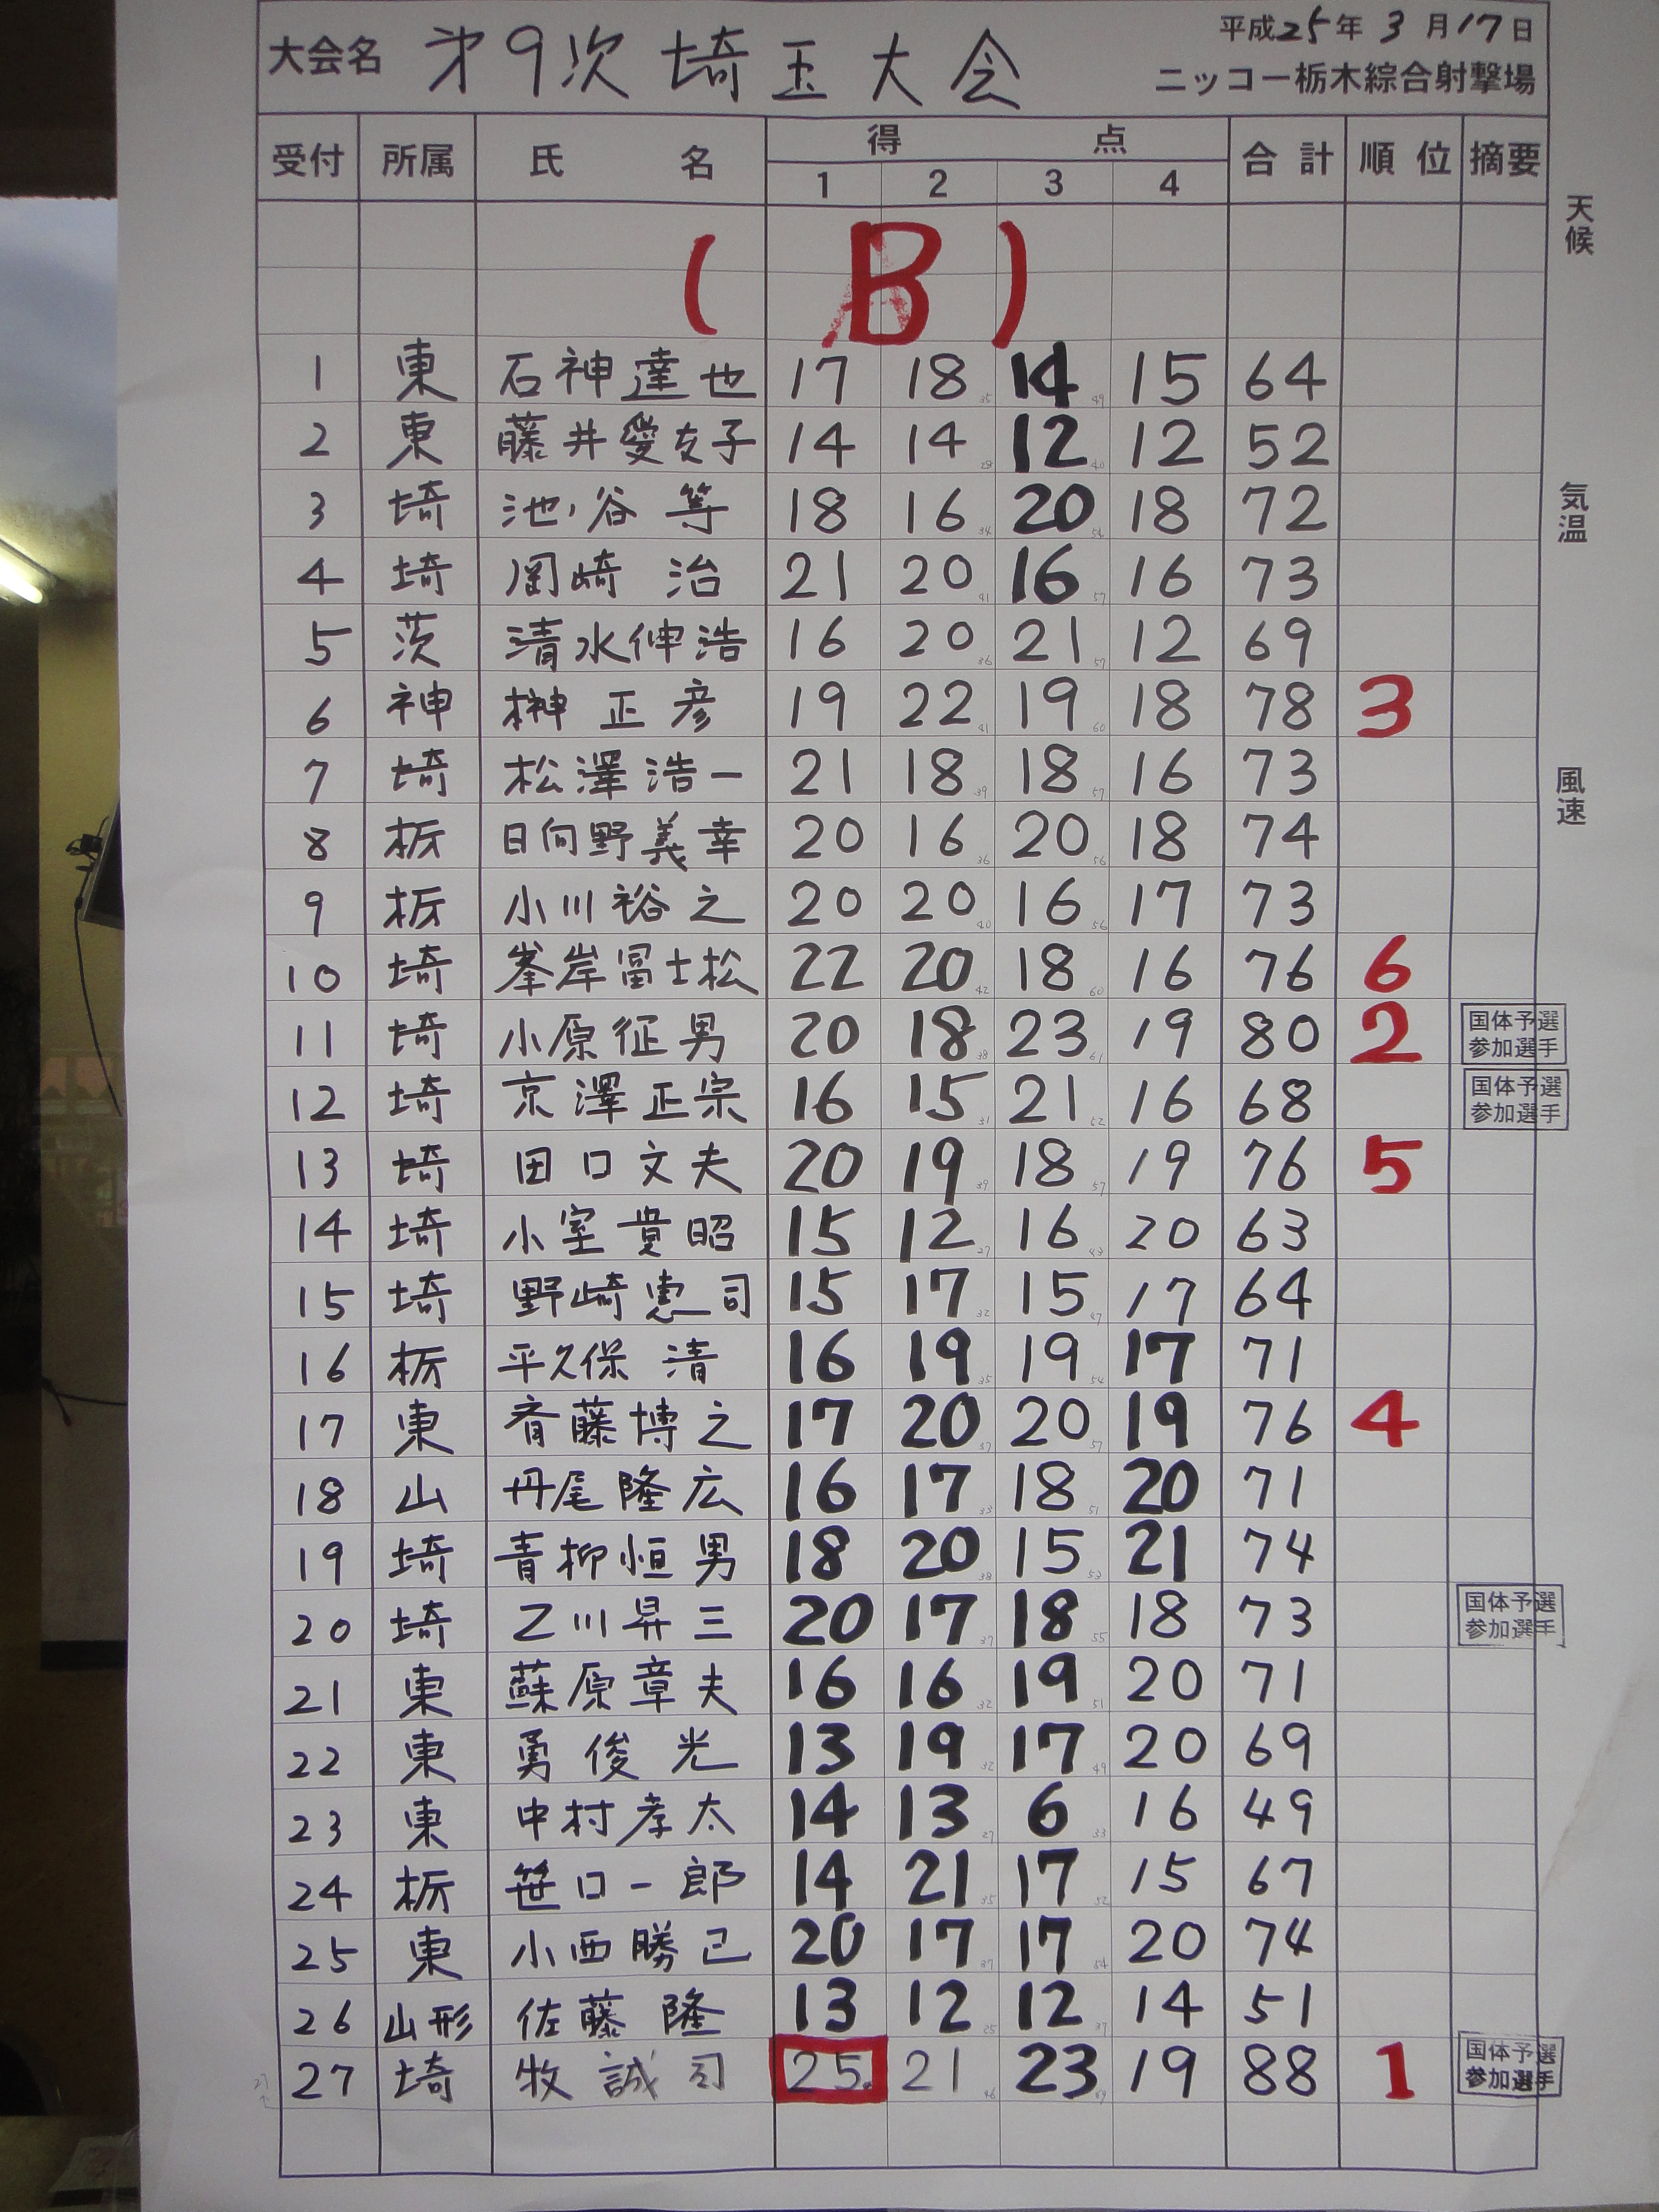 平成25年 3月17日
大会名 才9次 埼玉大会
ニッコー栃木綜合射撃場
受付 所属 氏名 得点 合計 順位 摘要
1 2 3 4
天候
気温
風速
(B)
1 東 石神達也 17 18 35 14 49 15 64
2 東 藤井愛友子 14 14 28 12 40 12 52
3 埼 池谷等 18 16 34 20 54 18 72
4 埼 岡崎治 21 20 41 16 57 16 73
5 茨 清水伸浩 16 20 36 21 57 12 69
6 神 榊正彦 19 22 41 19 60 18 78 3
7 埼 松澤浩一 21 18 39 18 57 16 73
8 栃 日向野義幸 20 16 36 20 56 18 74
9 栃 小川裕之 20 20 40 16 56 17 73
10 埼 峯岸冨士松 22 20 42 18 60 16 76 6
11 埼 小原征男 20 18 38 23 61 19 80 2 国体予選
参加選手
12 埼 京澤正宗 16 15 31 21 52 16 68 国体予選
参加選手
13 埼 田口文夫 20 19 39 18 57 19 76 5
14 埼 小室貴昭 15 12 27 16 43 20 63
15 埼 野崎恵司 15 17 32 15 47 17 64
16 栃 平久保清 16 19 35 19 54 17 71
17 東 斉藤博之 17 20 37 20 57 19 76 4
18 山 丹尾隆広 16 17 33 18 51 20 71
19 埼 青柳恒男 18 20 38 15 53 21 74
20 埼 乙川昇三 20 17 37 18 55 18 73 国体予選
参加選手
21 東 蘇原章夫 16 16 32 19 51 20 71
22 東 勇俊光 13 19 32 17 49 20 69
23 東 中村孝太 14 13 27 6 33 16 49
24 栃 笹口一郎 14 21 35 17 52 15 67
25 東 小西勝己 20 17 37 17 54 20 74
26 山形 佐藤隆 13 12 25 12 37 14 51
27 埼 牧誠司 25 21 46 23 69 19 88 1 国体予選
参加選手